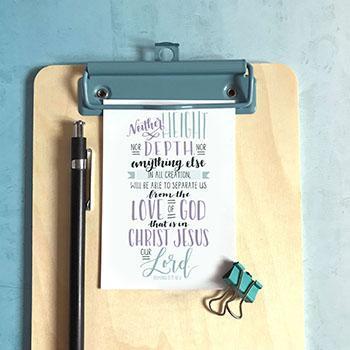 Neither HEIGHT
NOR DEPTH NOR
anything else
IN ALL CREATION,
WILL BE ABLE TO SEPARATE US
from the
LOVE OF GOD
that is in
CHRIST JESUS
OUR Lord